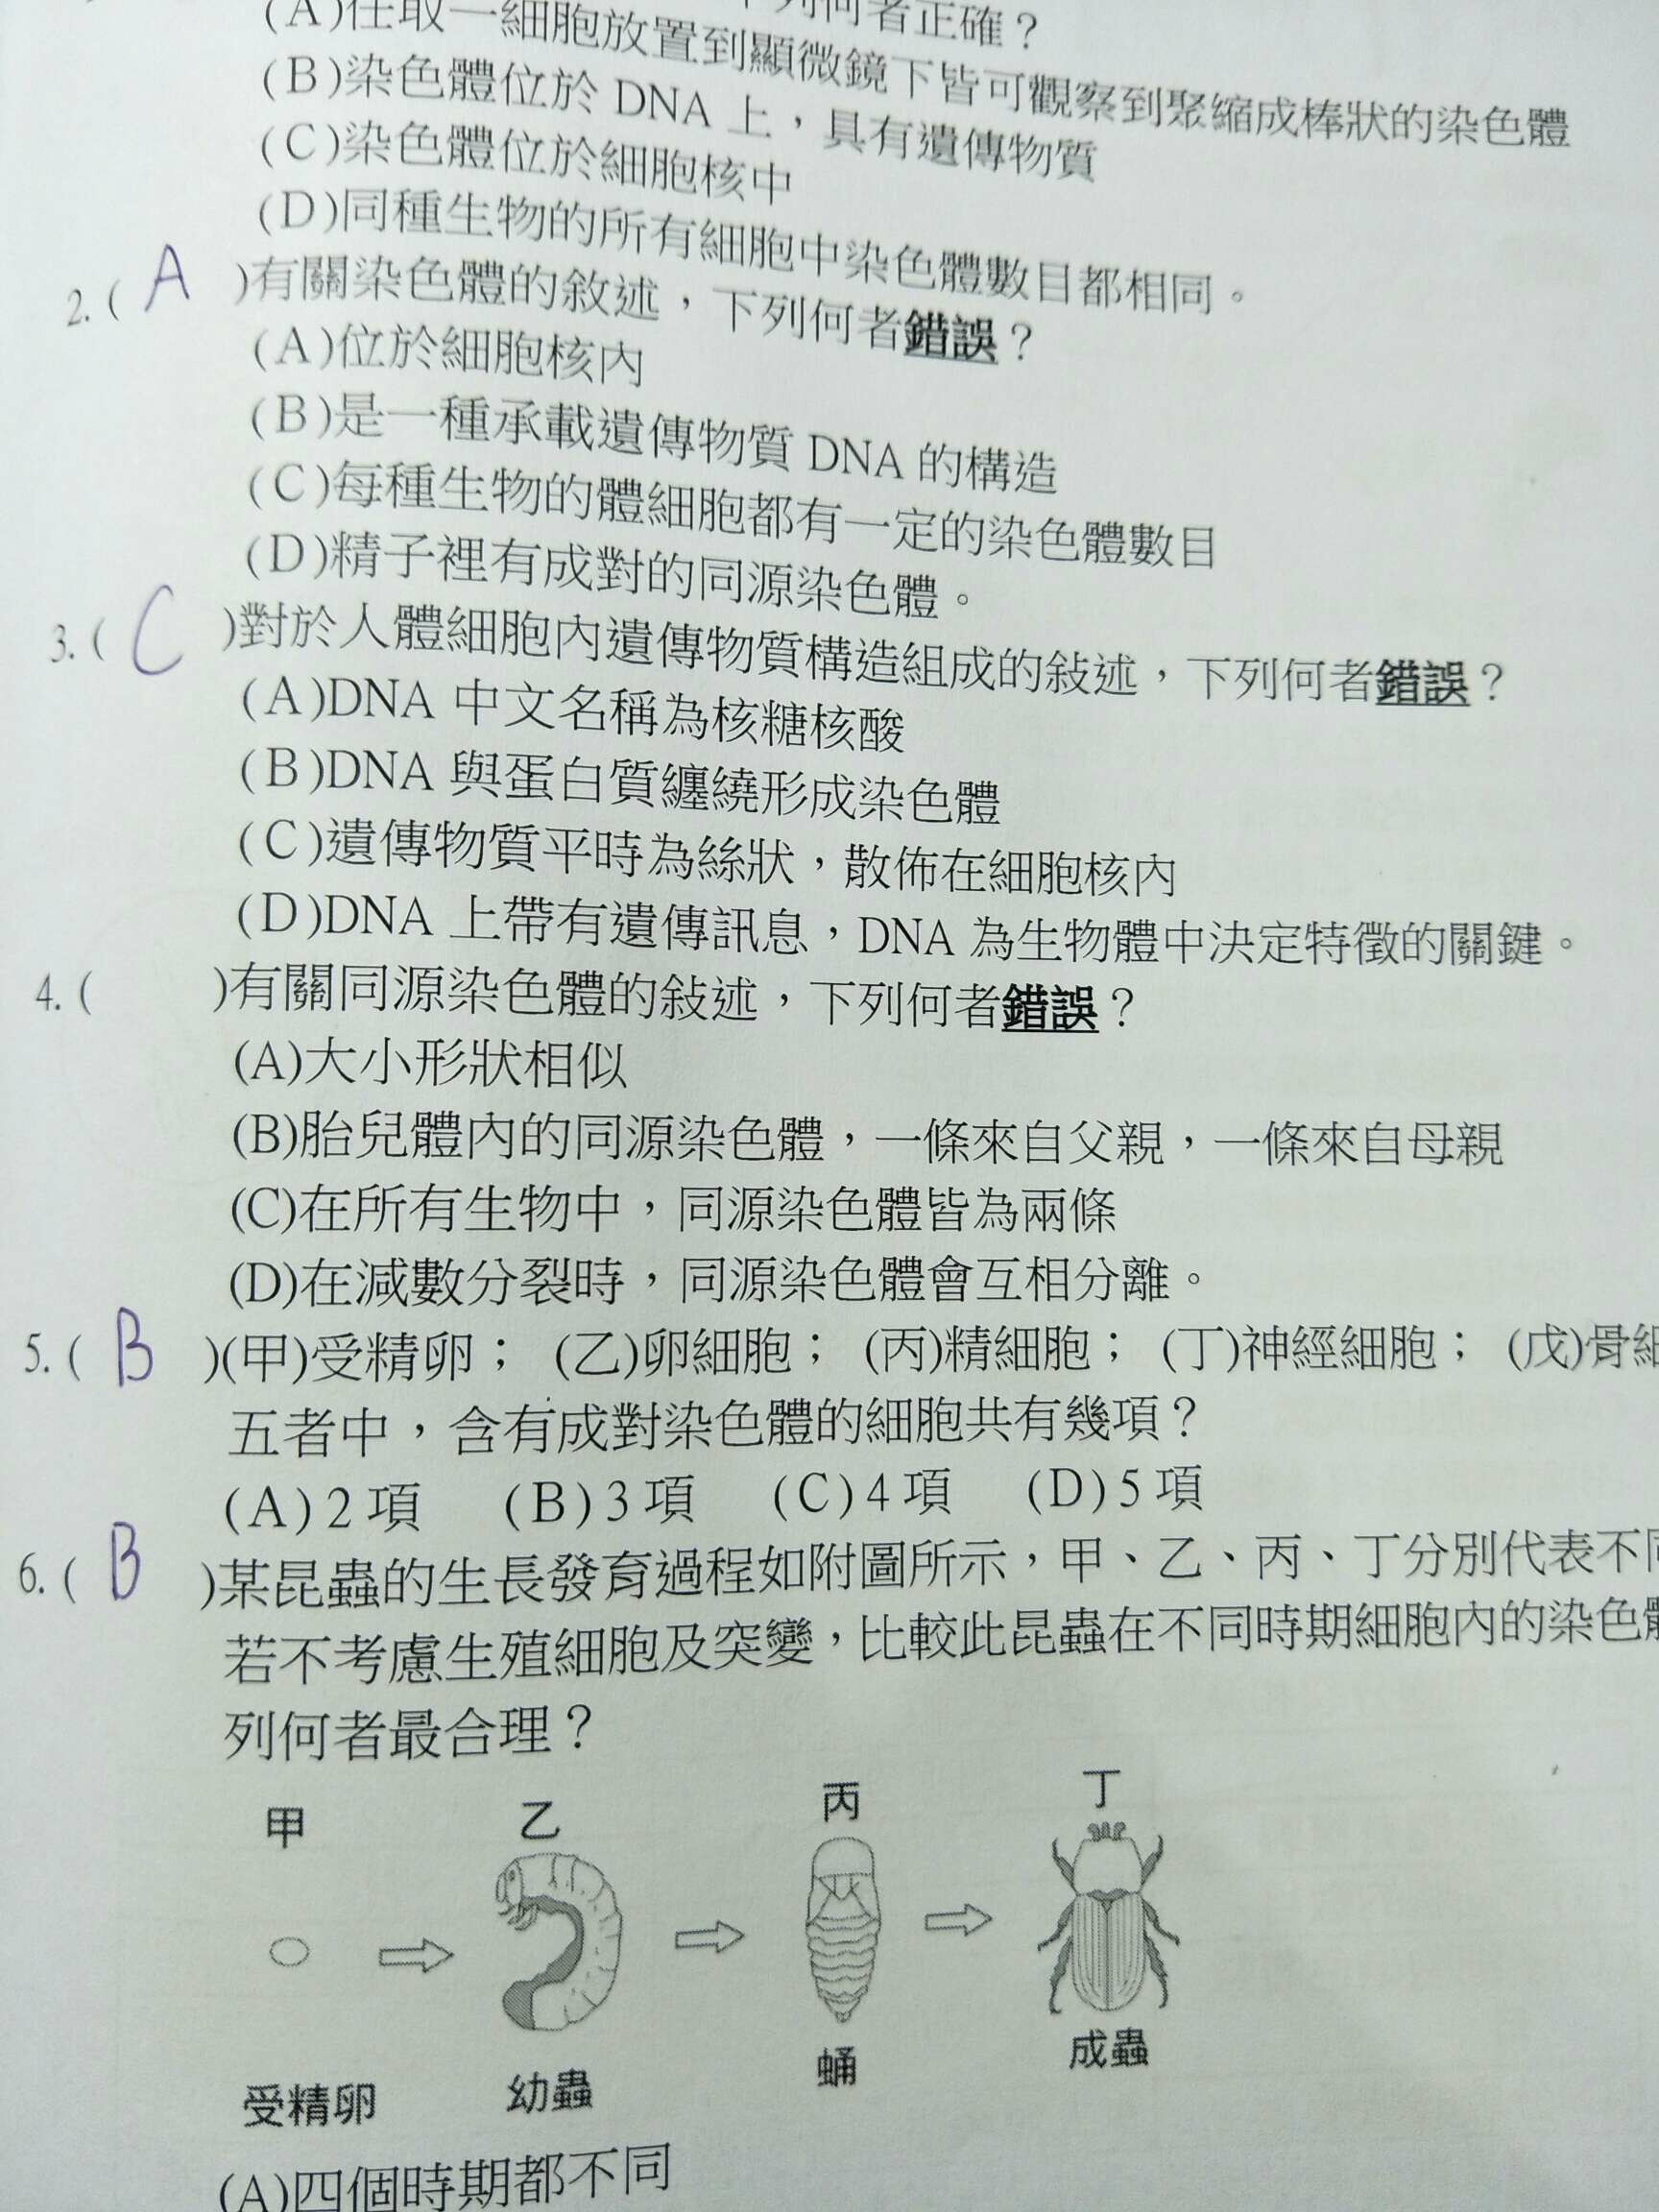 下列何者正確？
(A)任取一細胞放置到顯微鏡下皆可觀察到聚縮成棒狀的染色體
(B)染色體位於 DNA 上，具有遺傳物質
(C)染色體位於細胞核中
(D)同種生物的所有細胞中染色體數目都相同。
2.( A )有關染色體的敘述，下列何者錯誤？
(A)位於細胞核內
(B)是一種承載遺傳物質 DNA 的構造
(C)每種生物的體細胞都有一定的染色體數目
(D)精子裡有成對的同源染色體。
3.( C )對於人體細胞內遺傳物質構造組成的敍述，下列何者錯誤？
(A)DNA 中文名稱為核糖核酸
(B)DNA 與蛋白質纏繞形成染色體
(C)遺傳物質平時為絲狀，散佈在細胞核內
(D)DNA 上帶有遺傳訊息，DNA 為生物體中決定特徵的關鍵。
4.( )有關同源染色體的敍述，下列何者錯誤？
(A)大小形狀相似
(B)胎兒體內的同源染色體，一條來自父親，一條來自母親
(C)在所有生物中，同源染色體皆為兩條
(D)在減數分裂時，同源染色體會互相分離。
5.( B )(甲)受精卵； (乙)卵細胞； (丙)精細胞； (丁)神經細胞； (戊)骨細
五者中，含有成對染色體的細胞共有幾項？
(A)2 項 (B)3 項 (C)4 項 (D)5 項
6.( B )某昆蟲的生長發育過程如附圖所示，甲、乙、丙、丁分別代表不同
若不考慮生殖細胞及突變，比較此昆蟲在不同時期細胞內的染色體
列何者最合理？
甲 乙 丙 丁
受精卵 幼蟲 蛹 成蟲
(A)四個時期都不同